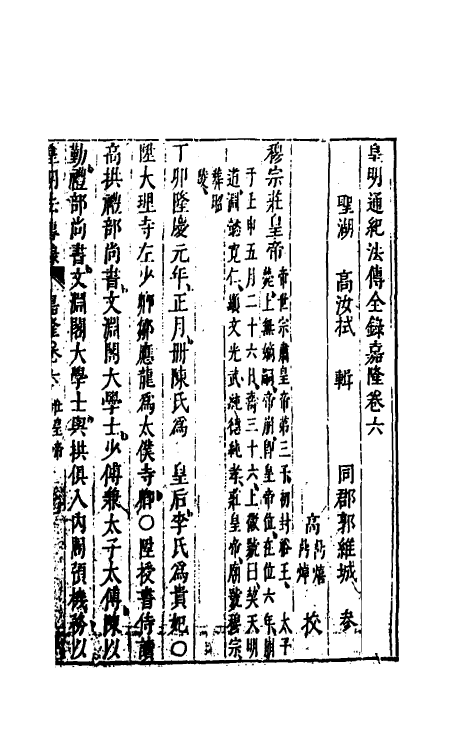 皇明通紀法傳全錄嘉隆卷六
聖湖 高汝栻 輯 同郡郭維城 參
高 校
穆宗莊皇帝
帝世宗肅皇帝第三子初封裕王太子
薨上無嫡嗣帝崩即皇帝位在位六年崩
于壬申五月二十六日壽三十六上徽號曰契天明
道淵懿寬仁顯文光武純德弘孝莊皇帝廟號穆宗
葬昭
陵
丁卯隆慶元年正月册陳氏為 皇后李氏為貴妃○
陞大理寺左少卿鄒應龍為太僕寺卿○陞投書侍讀
高拱禮部尚書文淵閣大學士少傅兼太子太傅陳以
勤禮部尚書文淵閣大學士與拱俱入內閣預機務以
皇明法傳錄 嘉隆卷六 莊皇帝